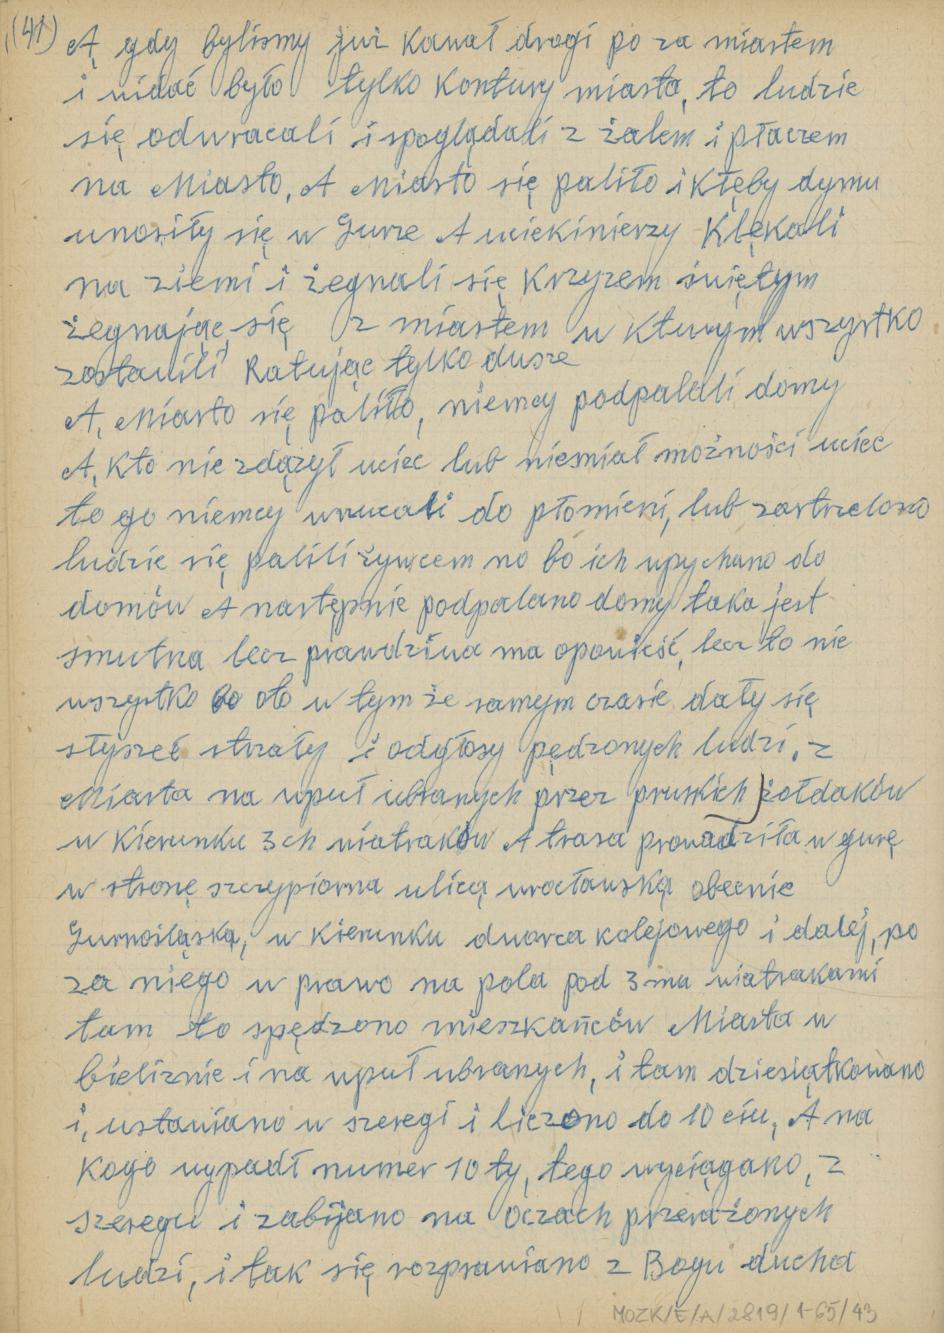 (41) A gdy bylismy już kawał drogi po za miastem
i widać było tylko kontury miasta, to ludzie
się odwracali i spoglądali z żalem i płaczem
na Miasto, A Miasto się paliło i kłęby dymu
unosiły się w Gurze A uciekinierzy klękali
na ziemi i żegnali się krzyzem świętym
żegnając się z miastem w kturym wszystko
zostawili Ratując tylko dusze
A, Miasto się paliło, niemcy podpalali domy
A, kto nie zdążył uciec lub niemiał możności uciec
to go niemcy wrzucali do płomieni, lub zastrzelono
ludzie się palili żywcem no bo ich wpychano do
domów A następnie podpalano domy taka jest
smutna lecz prawdziwa ma opowieść, lecz to nie
wszystko bo oto w tym że samym czasie dały się
słyszeć strzały i odgłosy pędzonych ludzi, z
Miasta na wpuł ubranych przez pruskich żołdaków
w kierunku 3ch wiatraków A trasa prowadziła w gurę
w stronę szczypiorna ulicą wrocławską obecnie
Gurnośląską, w kierunku dworca kolejowego i dalej, po
za niego w prawo na pola pod 3 ma wiatrakami
tam to spędzono mieszkańców Miasta w
bieliznie i na wpuł ubranych, i tam dziesiątkowano
i, ustawiano w szeregi i liczono do 10 ciu, A na
kogo wypadł numer 10 ty, tego wyciągano, z
szeregu i zabijano na oczach przerażonych
ludzi, i tak się rozprawiano z Bogu ducha
MOZK/E/A/2819/1-65/43